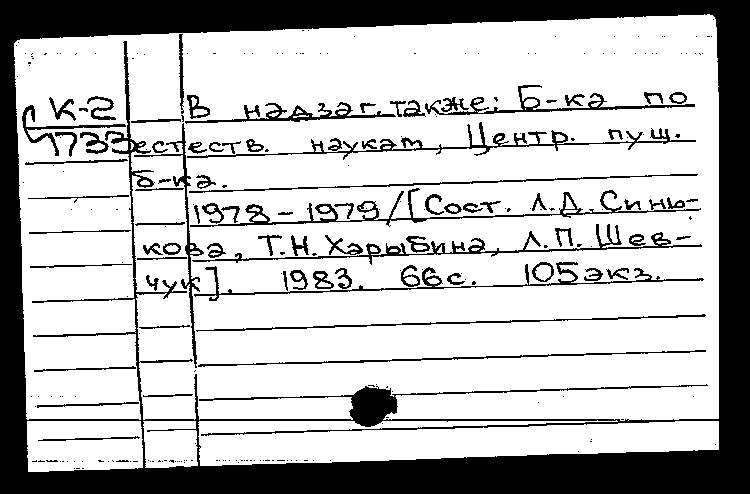 К-2
1733
В надзаг. также: Б-ка по
естеств. наукам, Центр. пущ.
б-ка.
1978-1979/[Сост. Л.Д. Синь-
кова, Т.Н. Харыбина, Л.П. Шев-
чук]. 1983. 66с. 105экз.